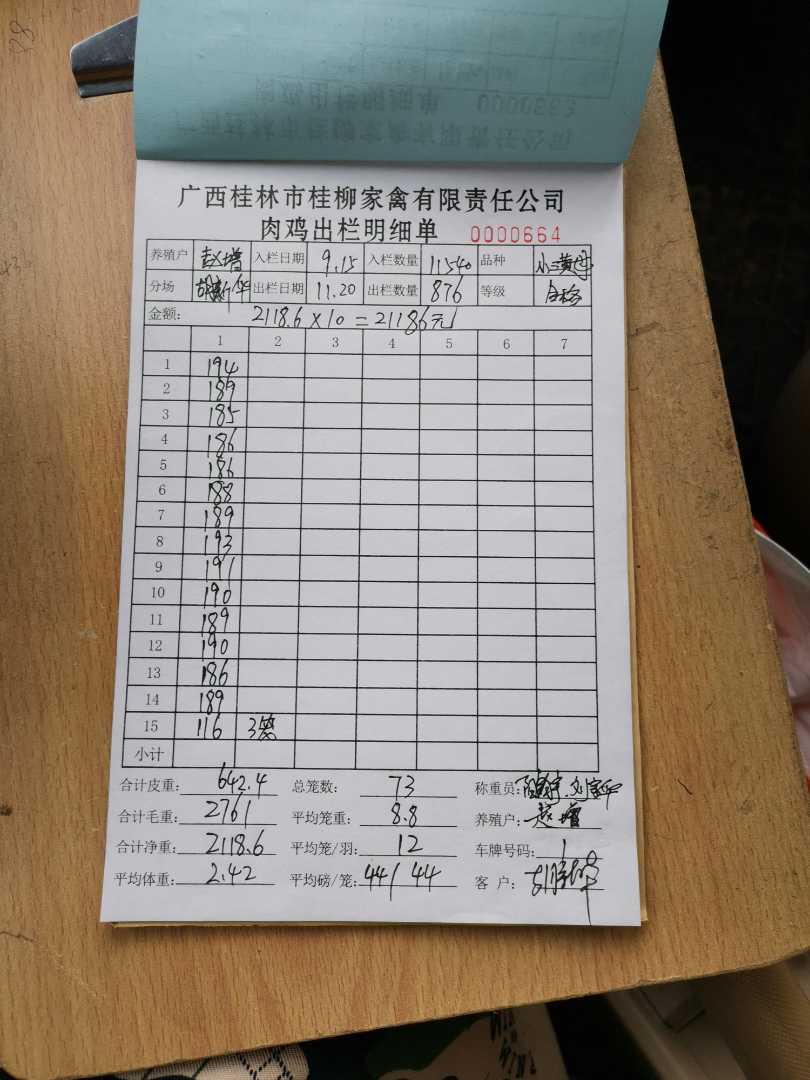 广西桂林市桂柳家禽有限责任公司
肉鸡出栏明细单 0000664
养殖户 赵增 入栏日期 9.15 入栏数量 11540 品种 小黄
分场 胡新华 出栏日期 11.20 出栏数量 876 等级 合格
金额: 2118.6×10=21186元
1 2 3 4 5 6 7
1 194
2 189
3 185
4 186
5 186
6 188
7 189
8 193
9 191
10 190
11 189
12 190
13 186
14 189
15 116 3笼
小计
合计皮重: 642.4 总笼数: 73 称重员:
合计毛重: 2761 平均笼重: 8.8 养殖户: 赵增
合计净重: 2118.6 平均笼/羽: 12 车牌号码: 1
平均体重: 2.42 平均磅/笼: 44/44 客户: